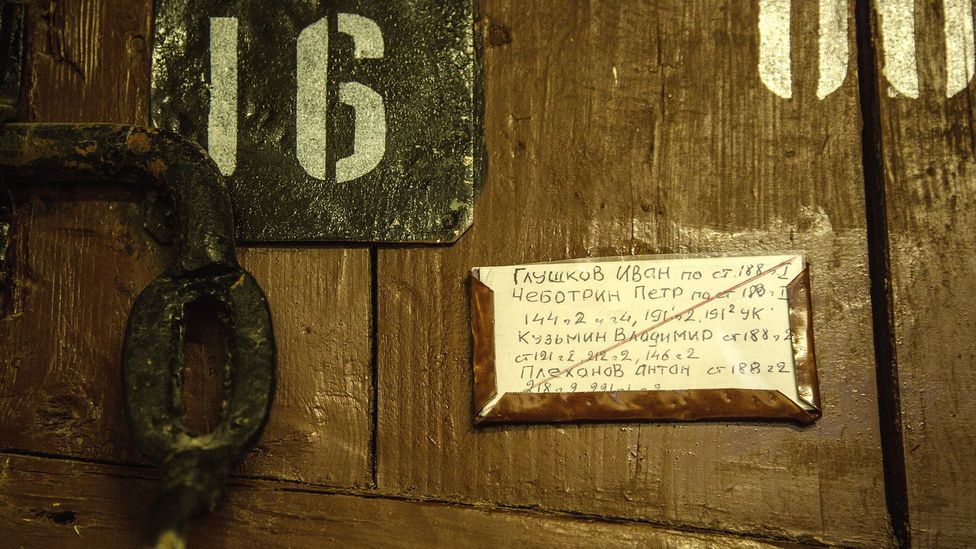 16
Глушков Иван по ст. 188, I
Чеботрин Петр по ст 188, I
144 ч 2 и ч4, 191 ч 2, 191² УК
Кузьмин Владимир ст 188 ч 2
ст 121 ч 2, 212 ч 2, 146 ч 2
Плеханов Антон ст 188 ч 2